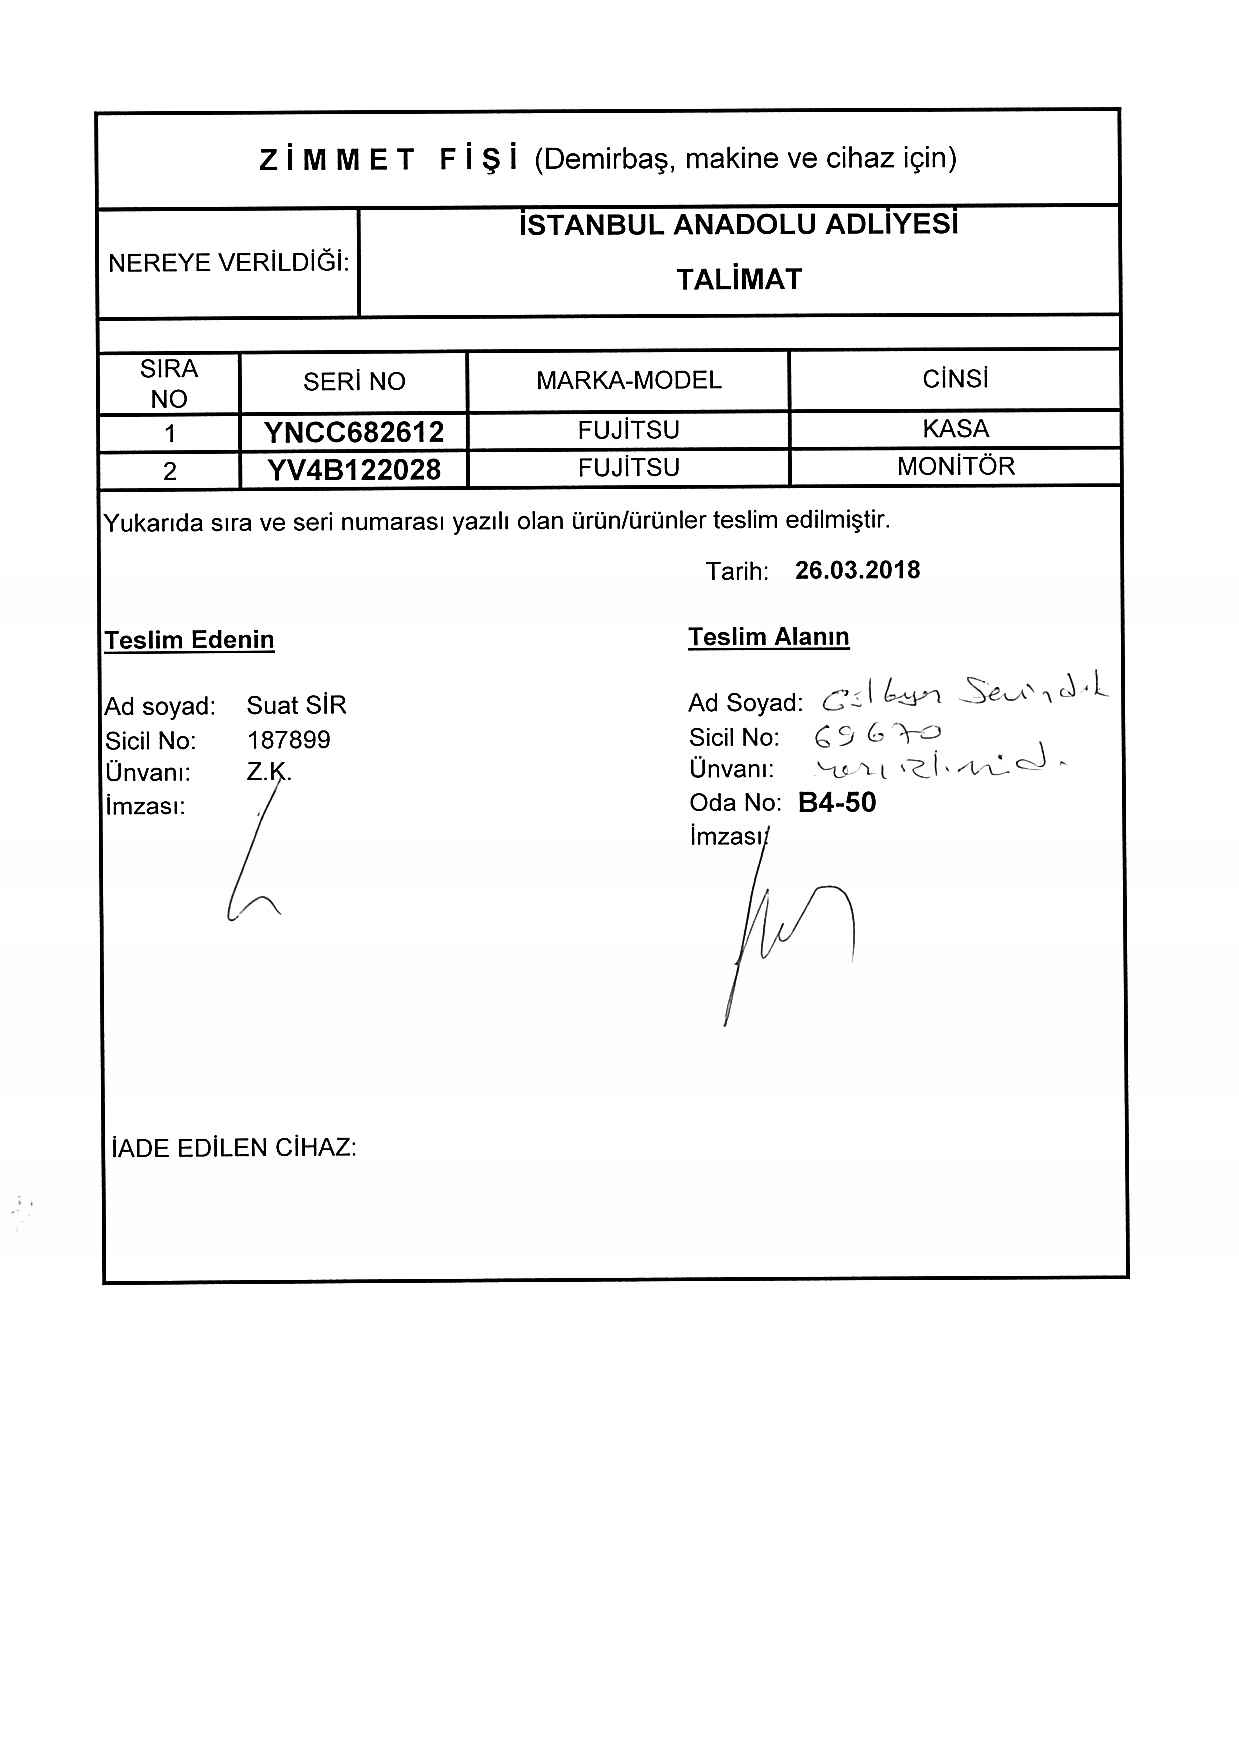 ZİMMET FİŞİ (Demirbaş, makine ve cihaz için)
NEREYE VERİLDİĞİ:
İSTANBUL ANADOLU ADLİYESİ
TALİMAT
SIRA NO SERİ NO MARKA-MODEL CİNSİ
1 YNCC682612 FUJİTSU KASA
2 YV4B122028 FUJİTSU MONİTÖR
Yukarıda sıra ve seri numarası yazılı olan ürün/ürünler teslim edilmiştir.
Tarih: 26.03.2018
Teslim Edenin
Ad soyad: Suat SİR
Sicil No: 187899
Ünvanı: Z.K.
İmzası:
Teslim Alanın
Ad Soyad:
Sicil No: 69670
Ünvanı:
Oda No: B4-50
İmzası:
İADE EDİLEN CİHAZ: